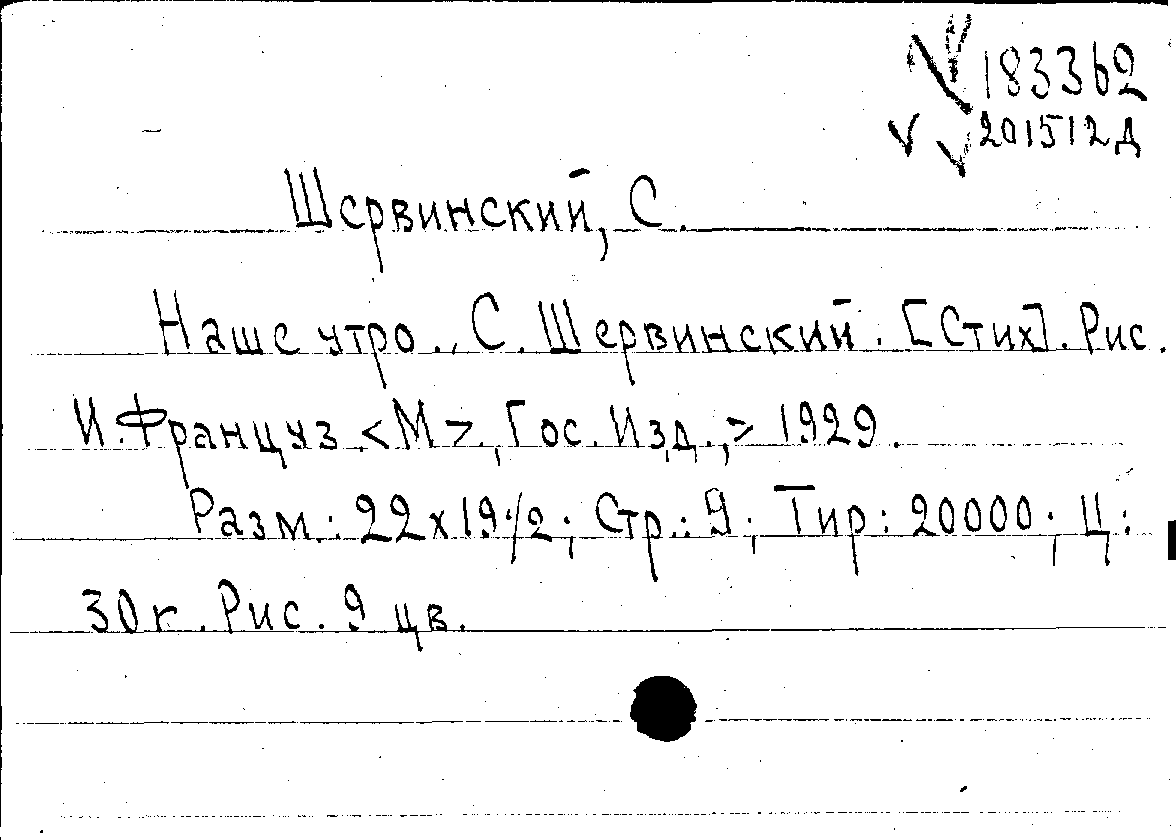 183362
201512Д
Шервинский, С.
Наше утро.. С. Шервинский. [Стих]. Рис.
И. Француз <М>., Гос. Изд.,> 1929.
Разм.: 22х19 1/2; Стр.: 9; Тир: 20000; Ц:
30 к. Рис. 9 цв.